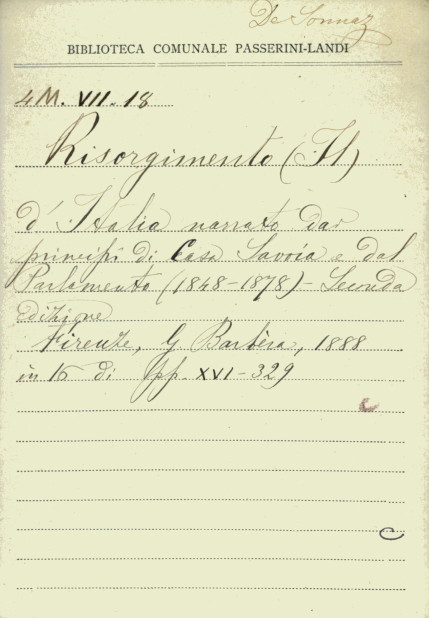 De Sonnaz
BIBLIOTECA COMUNALE PASSERINI-LANDI
4M. VII. 18
Risorgimento (Il)
d'Italia narrato dai
principi di Casa Savoia e dal
Parlamento (1848-1878) - Seconda
Edizione
Firenze, G Barbèra, 1888
in 16 di pp. XVI-329
C
C